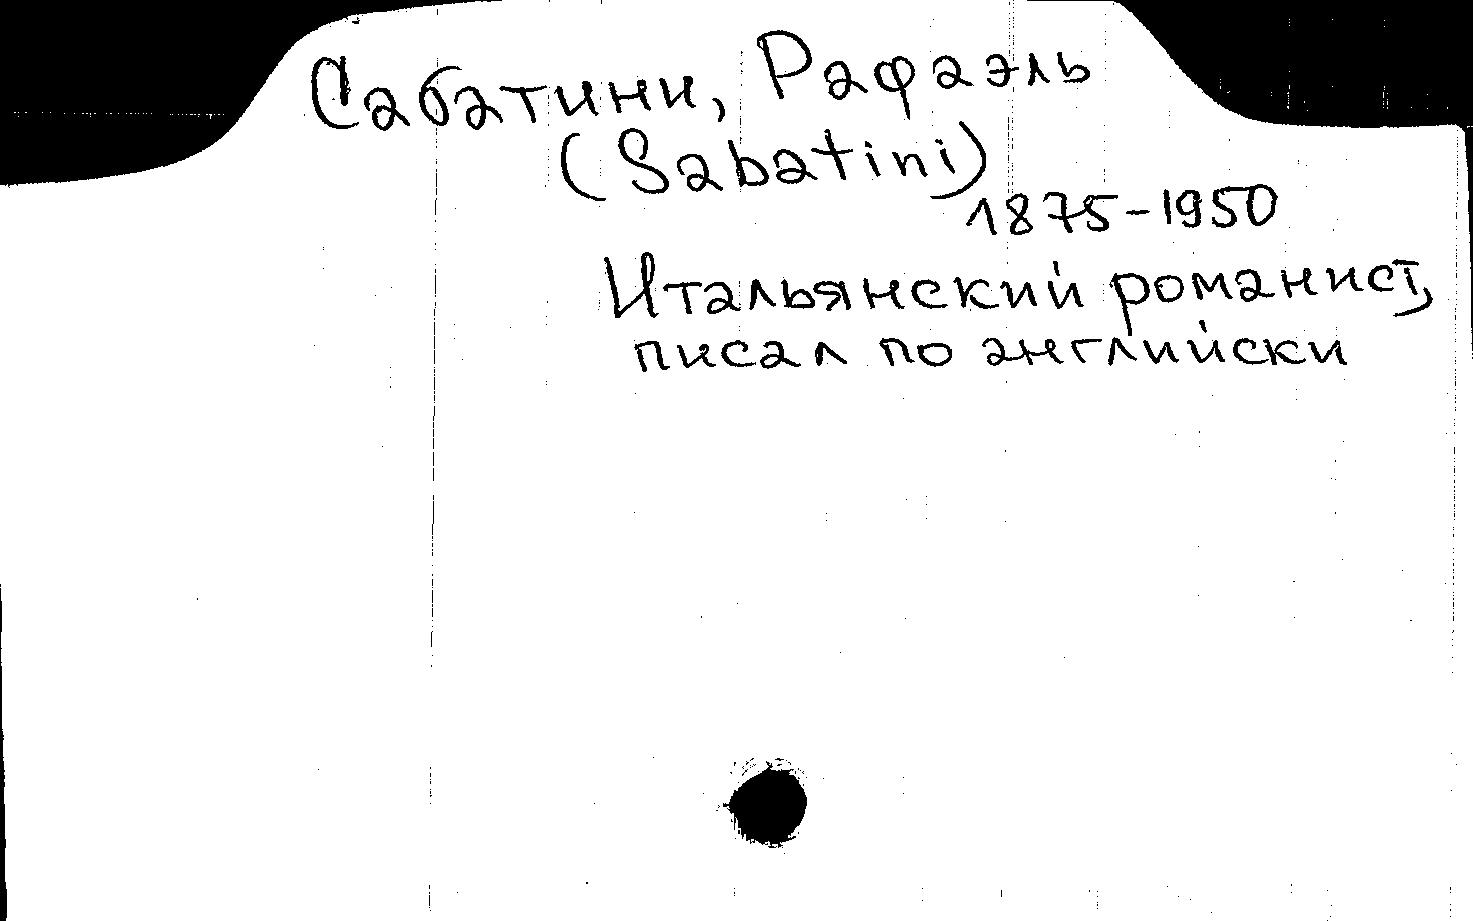 Сабатини, Рафаэль
(Sabatini)
1875-1950
Итальянский романист,
писал по английски